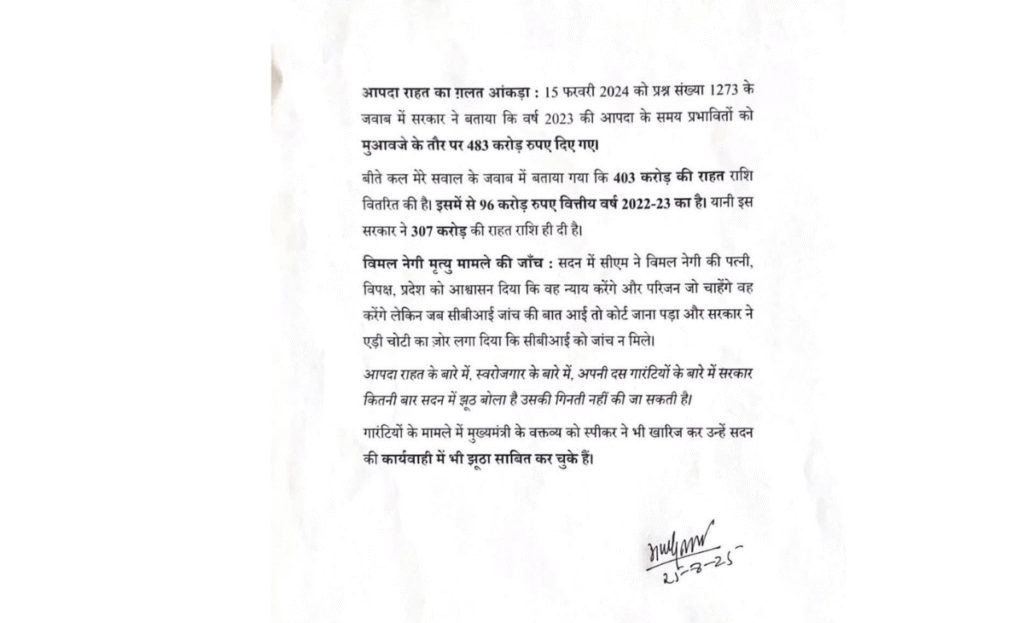 आपदा राहत का ग़लत आंकड़ा : 15 फरवरी 2024 को प्रश्न संख्या 1273 के
जवाब में सरकार ने बताया कि वर्ष 2023 की आपदा के समय प्रभावितों को
मुआवजे के तौर पर 483 करोड़ रुपए दिए गए।
बीते कल मेरे सवाल के जवाब में बताया गया कि 403 करोड़ की राहत राशि
वितरित की है। इसमें से 96 करोड़ रुपए वित्तीय वर्ष 2022-23 का है। यानी इस
सरकार ने 307 करोड़ की राहत राशि ही दी है।
विमल नेगी मृत्यु मामले की जाँच : सदन में सीएम ने विमल नेगी की पत्नी,
विपक्ष, प्रदेश को आश्वासन दिया कि वह न्याय करेंगे और परिजन जो चाहेंगे वह
करेंगे लेकिन जब सीबीआई जांच की बात आई तो कोर्ट जाना पड़ा और सरकार ने
एड़ी चोटी का ज़ोर लगा दिया कि सीबीआई को जांच न मिले।
आपदा राहत के बारे में, स्वरोजगार के बारे में, अपनी दस गारंटियों के बारे में सरकार
कितनी बार सदन में झूठ बोला है उसकी गिनती नहीं की जा सकती है।
गारंटियों के मामले में मुख्यमंत्री के वक्तव्य को स्पीकर ने भी खारिज कर उन्हें सदन
की कार्यवाही में भी झूठा साबित कर चुके हैं।
25-8-25